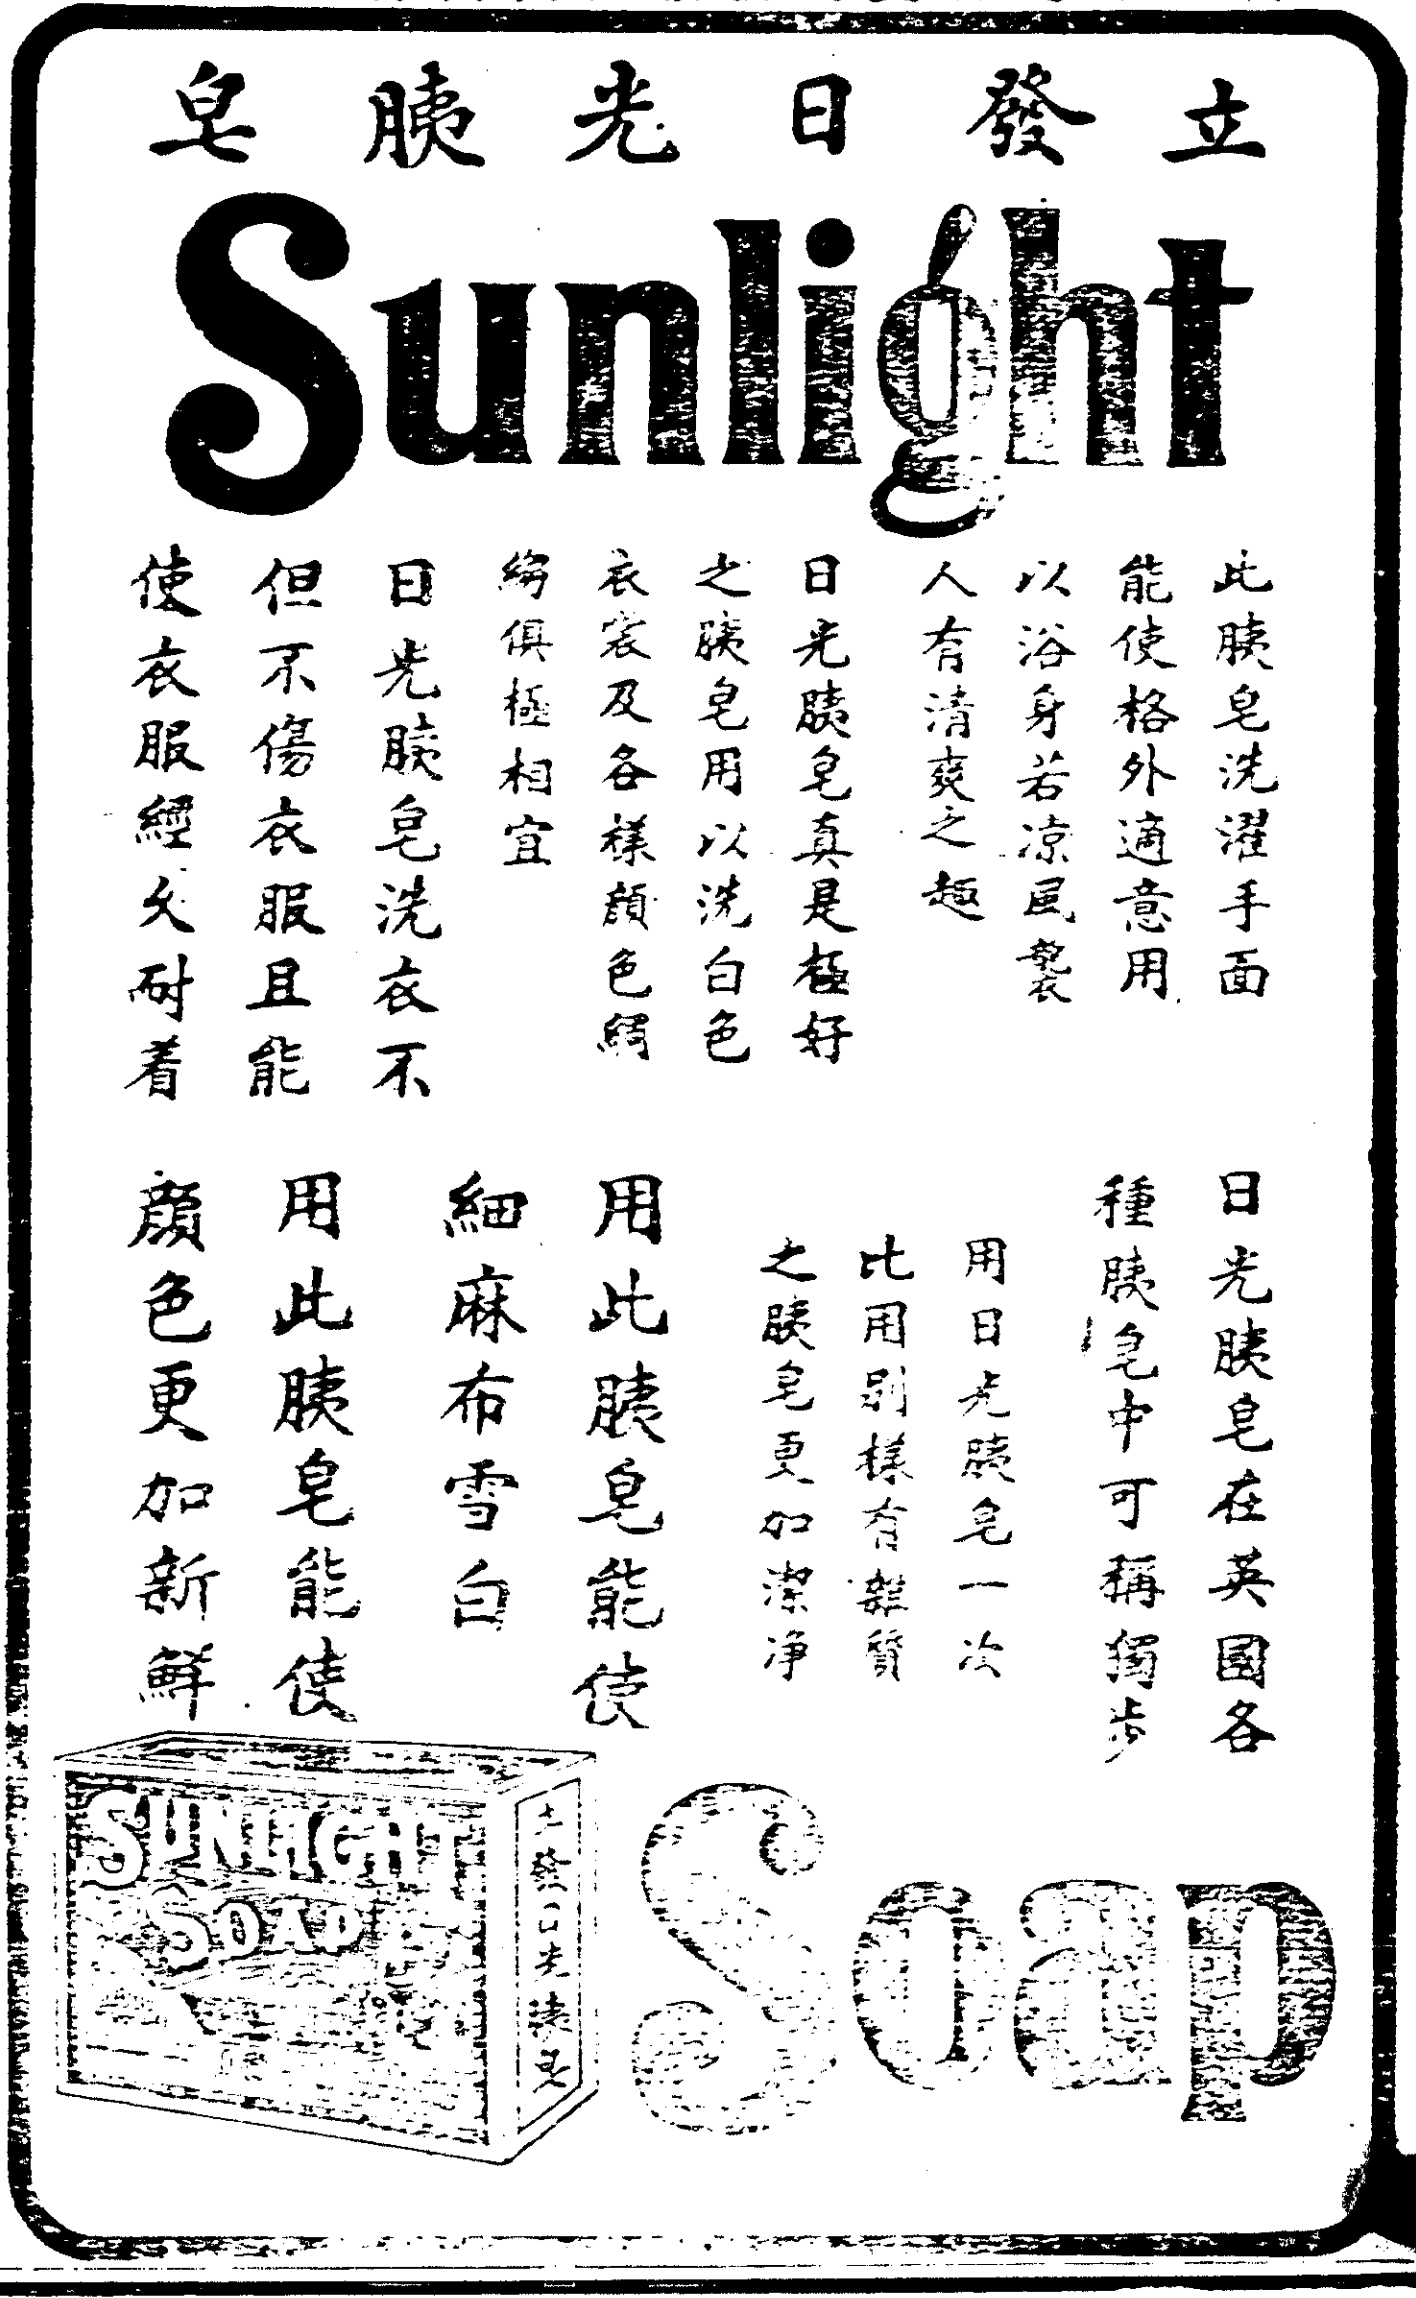 立發日光胰皂
Sunlight
此胰皂洗濯手面
能使格外適意用
以浴身若凉風襲
人有清爽之趣
日光胰皂真是極好
之胰皂用以洗白色
衣裳及各樣顔色綢
縐俱極相宜
日光胰皂洗衣不
但不傷衣服且能
使衣服經久耐着
日光胰皂在英國各
種胰皂中可稱獨步
用日光胰皂一次
比用別樣有雜質
之胰皂更加潔净
用此胰皂能使
細麻布雪白
用此胰皂能使
顔色更加新鮮
SUNLIGHT
SOAP
立發日光胰皂
Soap